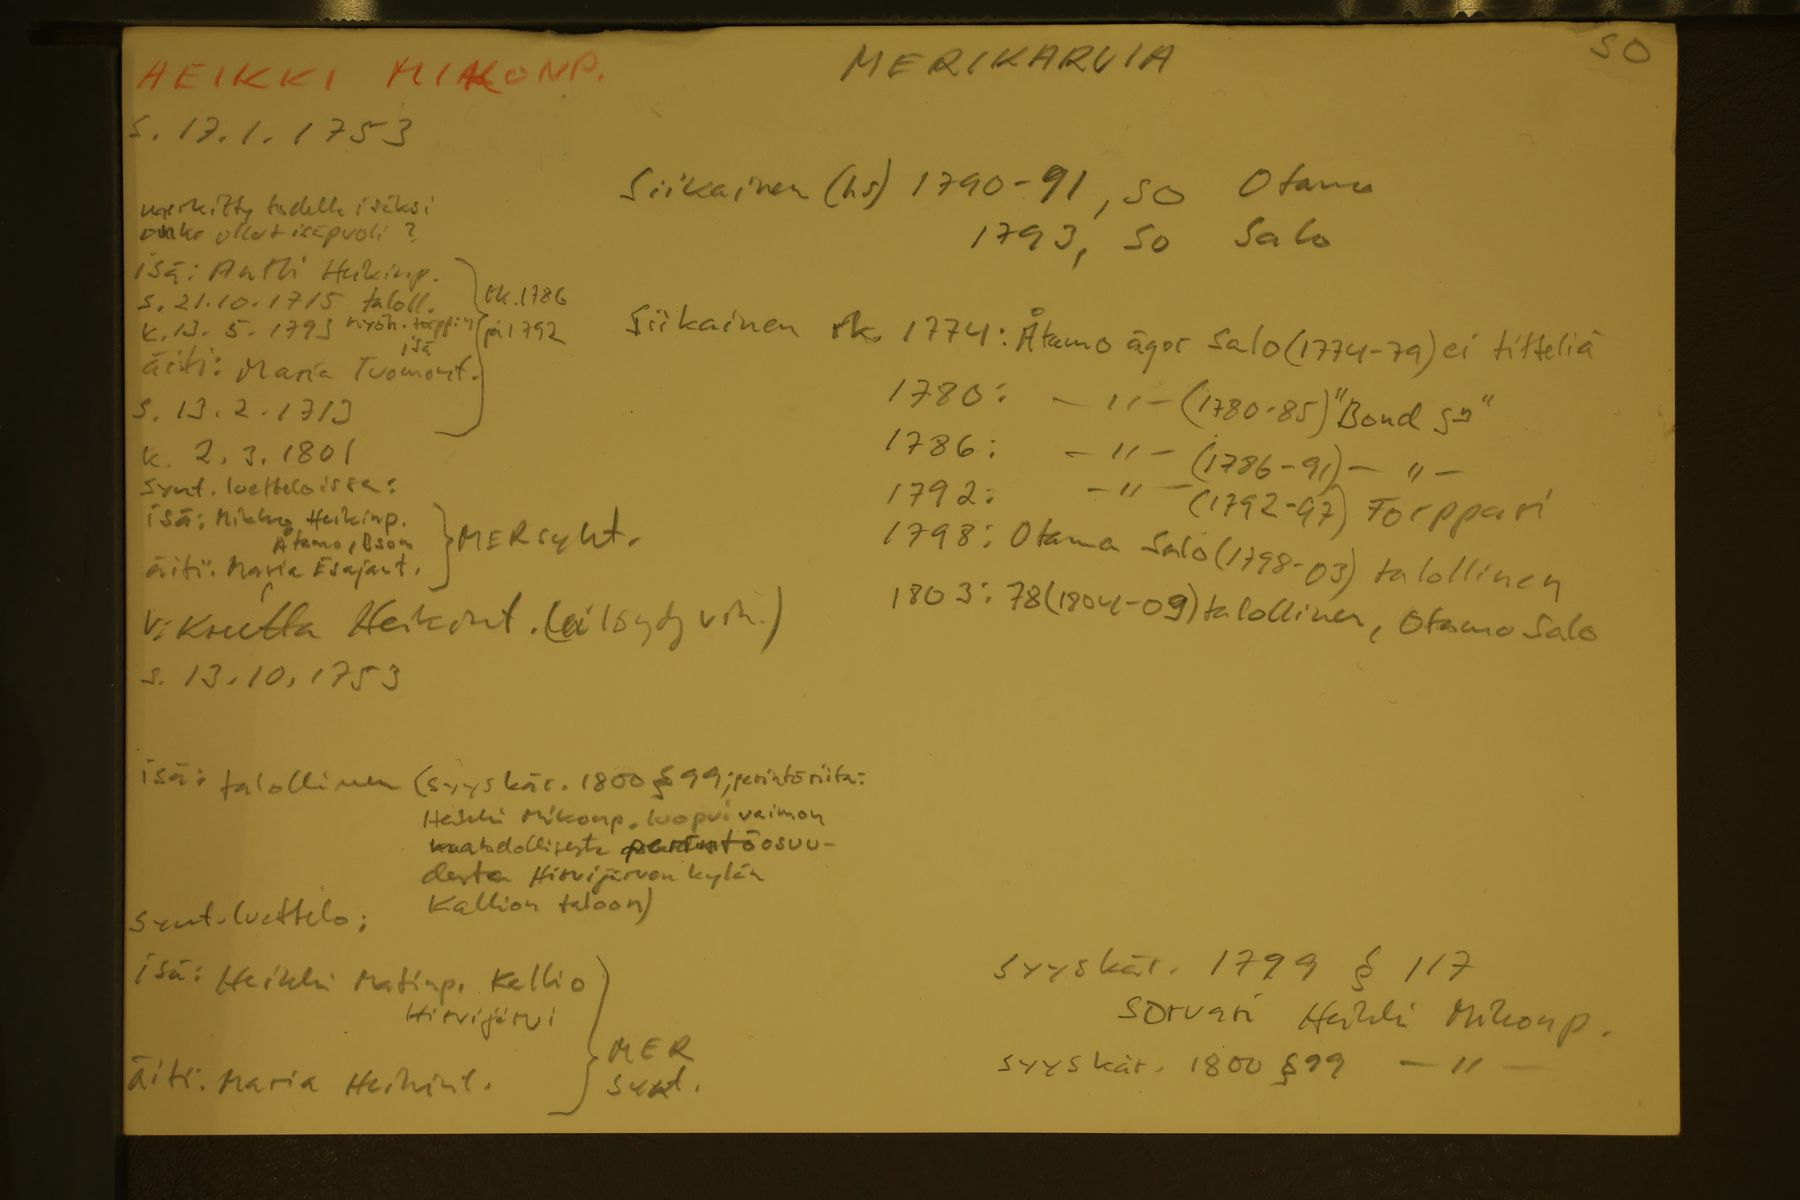 HEIKKI MIKONP.
MERIKARVIA
SO
s. 17.1.1753
merkitty todella isäksi
onko ollut isäpuoli?
isä: Antti Heikinp.
s. 21.10.1715 taloll.
k. 13.5.1793 myöh. torpparin
isä
äiti: Maria Tuomont.
s. 13.2.1713
rk. 1786
ja 1792
k. 2.3.1801
synt. luetteloissa:
isä: Mikko Heikinp.
Åtamo, Bsom
äiti: Maria Esajant.
MER synt.
v: Kreetta Heikint. (ei löydy vih.)
s. 13.10.1753
isä: talollinen (syyskär. 1800 § 99; perintöriita:
Heikki Mikonp. luopui vaimon
mahdollisesta perintöosuu-
desta Hirvijärven kylän
Kallion taloon)
synt. luettelo:
isä: Heikki Matinp. Kallio
Hirvijärvi
äiti: Maria Heikint.
MER
synt.
Siikainen (hs) 1790-91, SO Otamo
1793, SO Salo
Siikainen rk. 1774: Åtamo ägor Salo (1774-79) ei titteliä
1780: -"- (1780-85) "Bond s"
1786: -"- (1786-91) -"-
1792: -"- (1792-97) Torppari
1798: Otamo Salo (1798-03) talollinen
1803: 78 (1804-09) talollinen, Otamo Salo
syyskär. 1799 § 117
Sorvari Heikki Mikonp.
syyskär. 1800 § 99 -"-